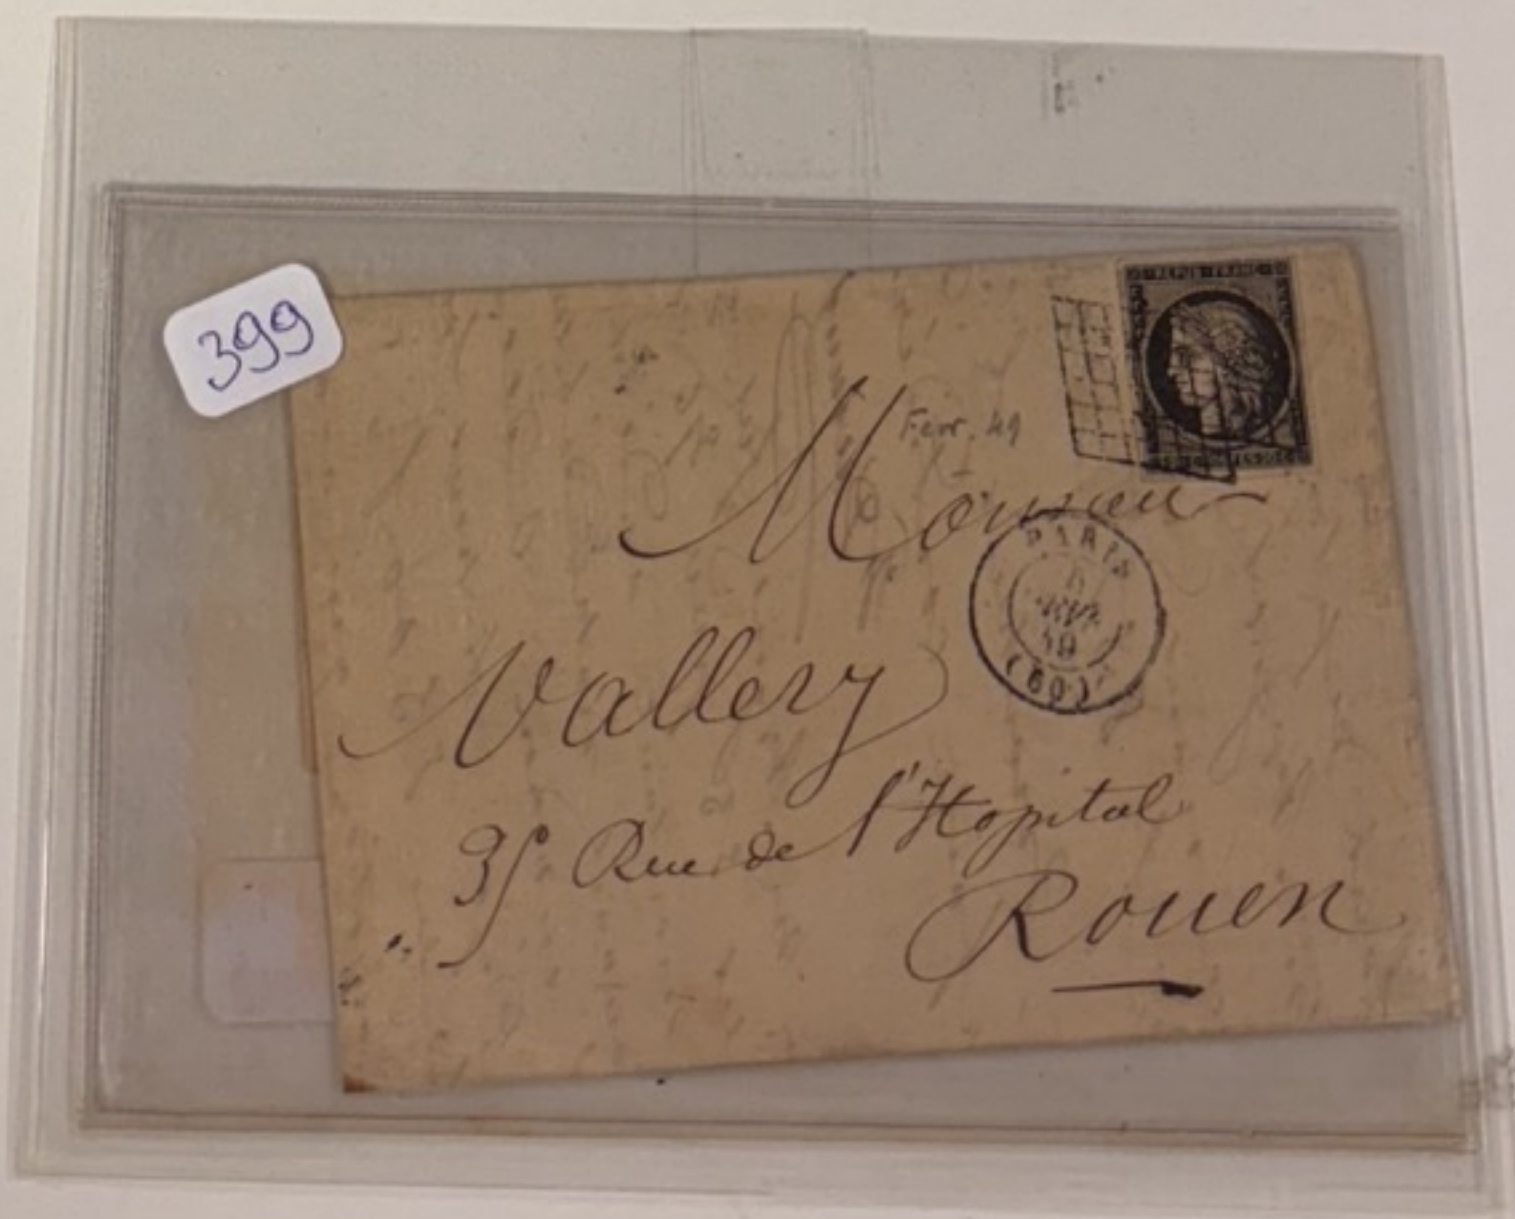 399
REPUB FRANC
Fevr. 49
Monsieur
PARIS
(60)
Vallery
35 Rue de l'Hopital
Rouen